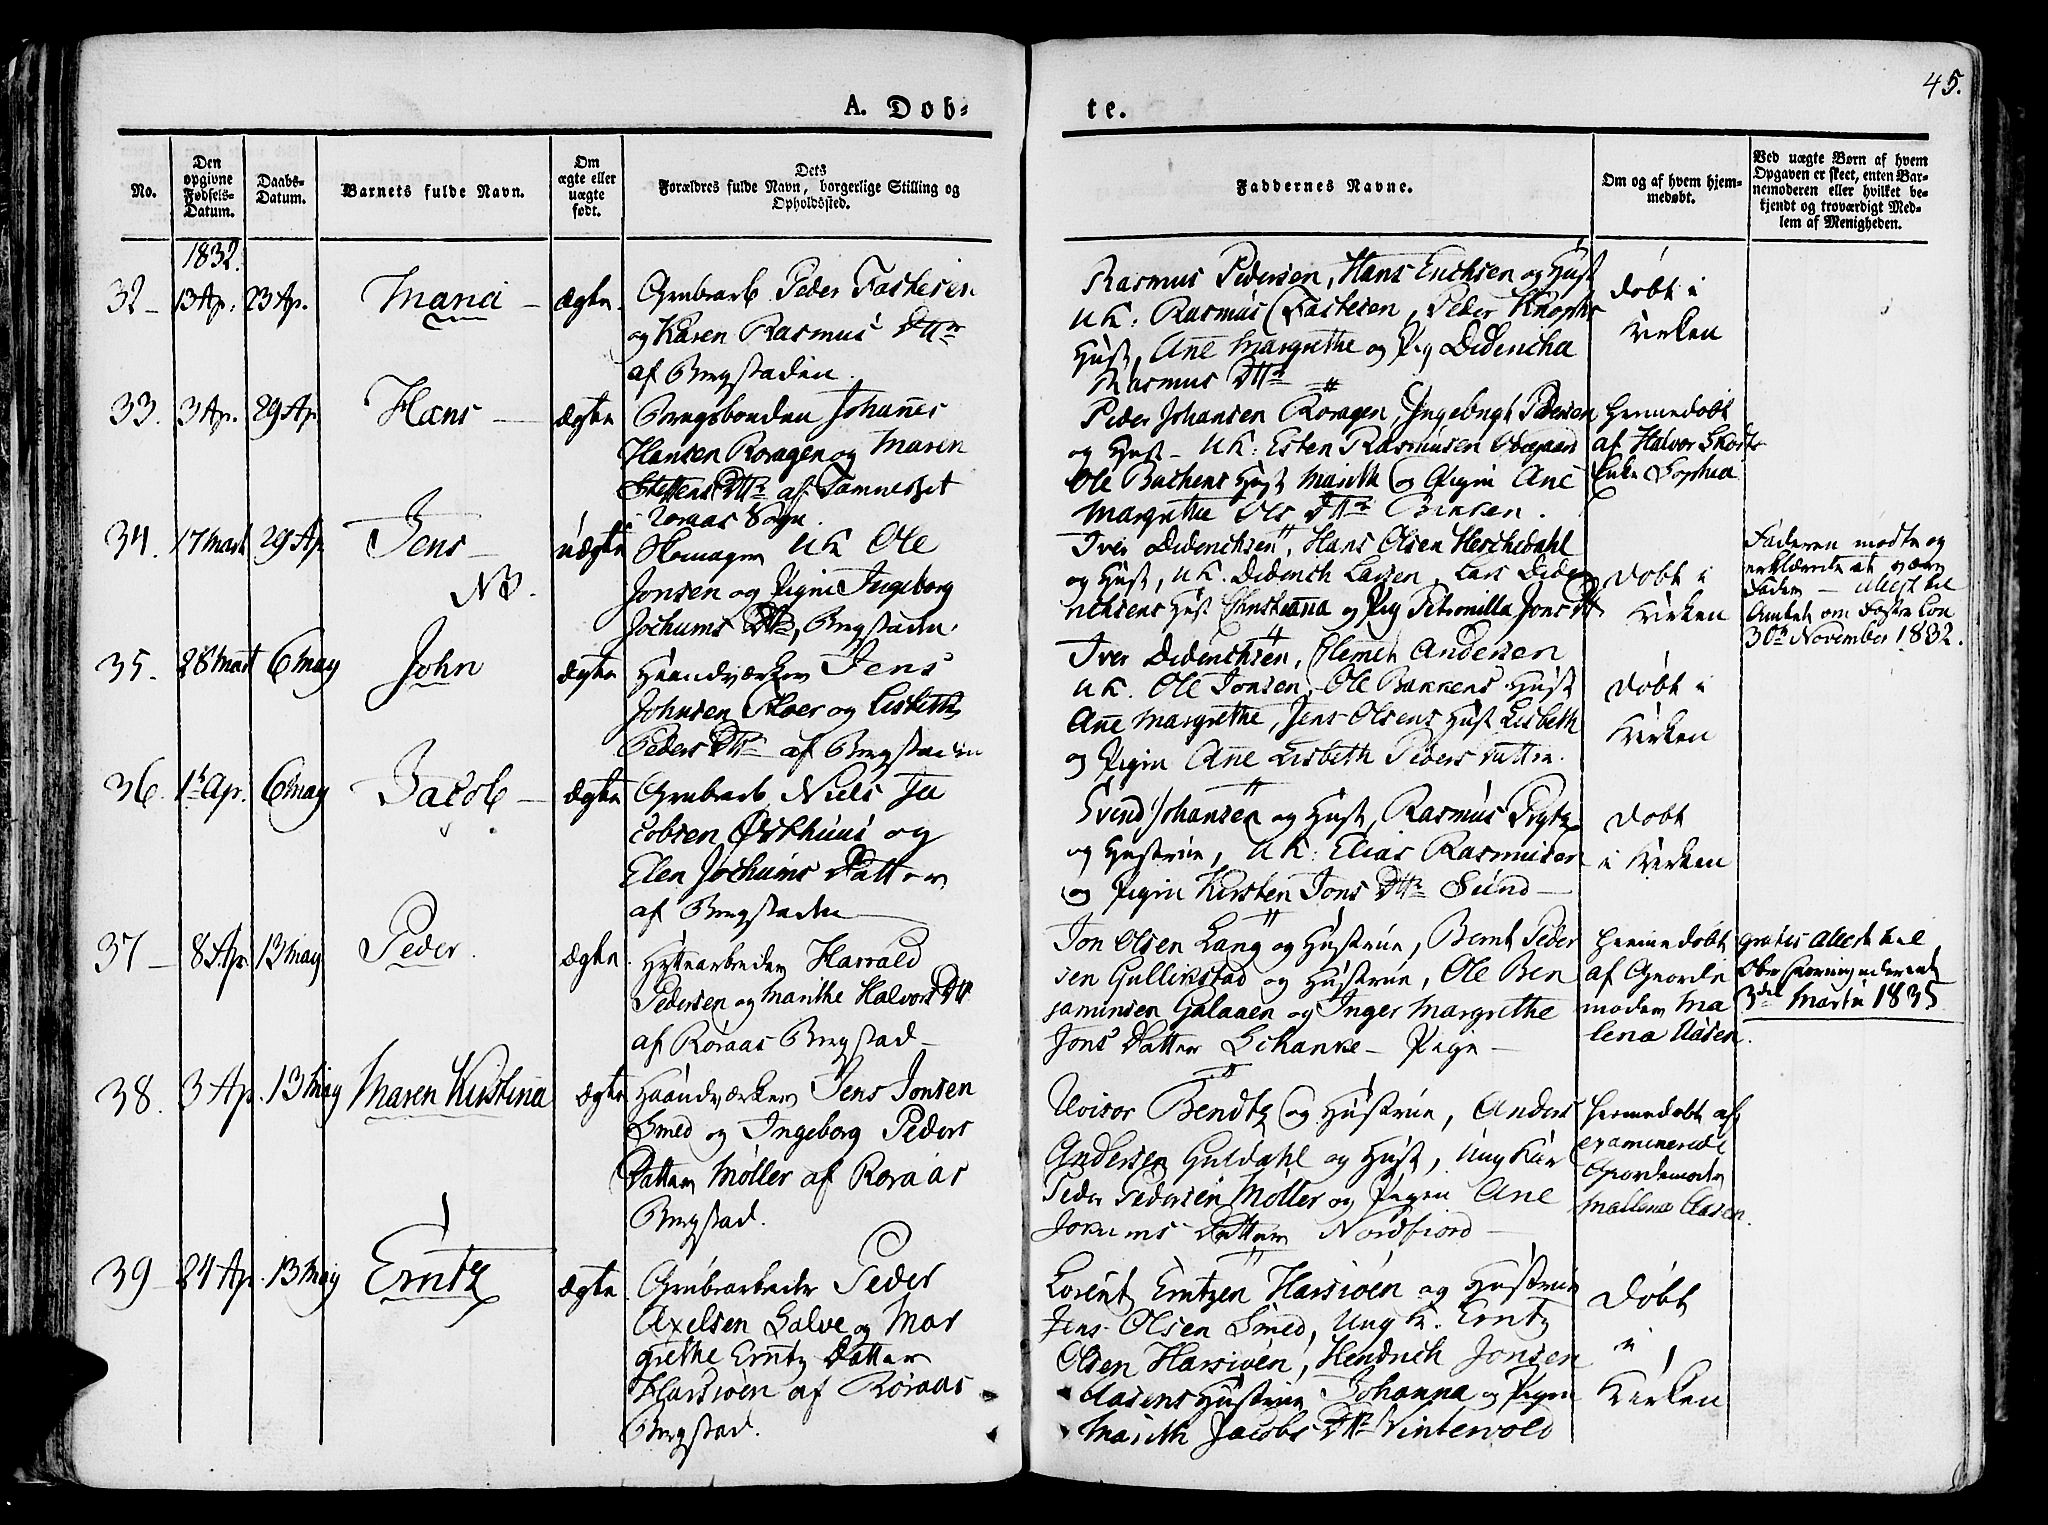 45.
A. Døb-
te.
No.
Den opgivne Fødsels-Datum.
Daabs-Datum.
Barnets fulde Navn.
Om ægte eller uægte født.
Dets Forældres fulde Navn, borgerlige Stilling og Opholdssted.
Faddernes Navne.
Om og af hvem hjem-medøbt.
Ved uægte Børn af hvem Opgaven er skeet, enten Bar-nemoderen eller hvilket be-kjendt og troværdigt Med-lem af Menigheden.
1832.
32 – 13 Ap. 23 Ap. Marici – ægte.
Grubearb. Peder Fastesen
og Karen Rasmus Dttr
af Bergstaden.
Rasmus Pedersen, Hans Erichsen og Hust
UK: Rasmus Fastesen, Peder Knophs
Hust, Ane Margrethe og Pig Didericha
Rasmus Dttr
døbt i
Kirken
33. 3 Ap. 29 Ap. Hans – ægte
Brugsbonden Johannes
Hansen Roragen og Maren
Steffens Dttr af Tamnesset
Roraas Sogn.
Peder Johansen Roragen, Ingebrigt Pedersen
og Hust – UK: Esten Rasmusen
Ole Bachens Hust Marith og Pigen Ane
Margrethe Ols Dttr Bersen.
hjemmedøbt
af Halvor
Enke Sophia
34. 17 Mart 29 Ap Jens – uægte
NB.
UK Ole
Jonsen og Pigen Ingeborg
Jochums Dttr, Bergstaden.
Iver Diderichsen, Hans Olsen Herschedahl
og Hust, UK. Diderich Larsen, Lars Dide
richsens Hust Christianna og Pig Petronilla Jons Dtr
døbt i
Kirken
Faderen mødte og
erklærede at være
Fader – Attest til
Amtet om
30te November 1832.
35. 28 Mart 6 May John ægte
Haandværker Jens
Johnsen Floer og Lisbeth
Peders Dttr af Bergstaden
Iver Diderichsen, Clemet Andersen
UK. Ole Jonsen, Ole Bakkens Hust
Ane Margrethe, Jens Olsens Hust Lisbeth
og Pigen Ane Lisbeth Peders Datter.
døbt i
Kirken
36. 1ste Ap. 6 May Jacob – ægte
Grubearb. Niels Ja
cobsen Østhuus og
Elen Jochums Datter
af Bergstaden –
Svend Johansen og Hust, Rasmus Prytz
og Hustrue, UK: Elias Rasmusen
og Pigen Kirsten Jons Dttr Sund –
døbt
i Kirken
37 – 8 Ap. 13 May Peder. ægte.
Hyttearbeider Harrald
Pedersen og Marithe Halvors Dttr
af Røraas Bergstad –
Jon Olsen Lang og Hustrue, Bernt Peder
sen Gullikstad og Hustrue, Ole Ben
jaminsen Galaaen og Inger Margrethe
Jons Datter Schanke – Pige –
hjemmedøbt
af Gjorde
moder Ma
lena Aasen.
gratis Attest til
3die Martii 1835
38. 3 Ap. 13 May Maren Kirstina ægte
Haandværker Jens Jonsen
Smed og Ingeborg Peders
Datter Møller af Roraas
Bergstad.
Bendtz og Hustrue, Anders
Andersen Guldahl og Hust, Ung Kar
Peder Pedersen Møller og Pigen Ane
Jokums Datter Nordfiord –
hjemmedøbt af
examinerede
Gjordemoder
Mallena Aasen.
39 – 24 Ap. 13 May Erntz ægte
Grubearbeider Peder
Axelsen Galve og Mar
grethe Erntz Datter
Harsiøen af Røraas
Bergstad.
Lorentz Erntzen Harsiøen og Hustrue
Jens Olsen Smed, Ung K. Erntz
Olsen Harsiøen, Hendrich Jonsen
Aasens Hustrue Johanna og Pigen
Marith Jacobs Dttr Vintervold
døbt
i
Kirken